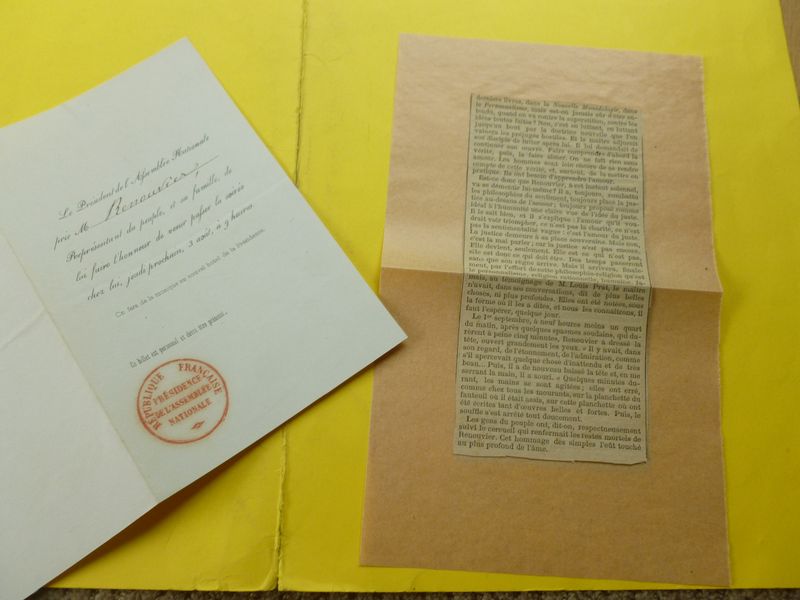 Le Président de l'Assemblée Nationale
prie M Renouvier,
Représentant du peuple, et sa famille, de
lui faire l'honneur de venir passer la soirée
chez lui, jeudi prochain, 3 août, à 9 heures.
On fera de la musique au nouvel hôtel de la Présidence.
Ce billet est personnel et devra être présenté.
RÉPUBLIQUE FRANÇAISE
PRÉSIDENCE
DE L'ASSEMBLÉE
NATIONALE
derniers livres, dans la Nouvelle Monadologie, dans
le Personnalisme, mais est-on jamais sûr d'être en-
tendu, quand on va contre la superstition, contre les
idées toutes faites? Non, c'est en luttant, en luttant
jusqu'au bout par la doctrine nouvelle que l'on
vaincra les préjugés hostiles. Et le maître adjurait
son disciple de lutter après lui. Il lui demandait de
continuer son œuvre. Faire comprendre d'abord la
vérité, puis, la faire aimer. On ne fait rien sans
amour. Les hommes sont loin encore de se rendre
compte de cette vérité, et, surtout, de la mettre en
pratique. Ils ont besoin d'apprendre l'amour.
Est-ce donc que Renouvier, à cet instant solennel,
va se démentir lui-même? Il a, toujours, combattu
les philosophies du sentiment, toujours placé la jus-
tice au-dessus de l'amour; toujours proposé comme
idéal à l'humanité une claire vue de l'idée du juste.
Il le sait bien, et il s'explique : l'amour qu'il vou-
drait voir triompher, ce n'est pas la charité, ce n'est
pas la sentimentalité vague : c'est l'amour du juste.
La justice demeure à sa place souveraine. Mais non,
c'est là mal parler; car la justice n'est pas encore.
Elle devient, seulement. Elle est ce qui n'est pas,
elle est donc ce qui doit être. Des temps passeront
sans que son règne arrive. Mais il arrivera, finale-
ment, par l'effort de cette philosophie-religion qu'est
le personnalisme, religion rationnelle, humaine. Ja-
mais, au témoignage de M. Louis Prat, le maître
n'avait, dans ses conversations, dit de plus belles
choses, ni plus profondes. Elles ont été notées, sous
la forme où il les a dites, et nous les connaîtrons, il
faut l'espérer, quelque jour.
Le 1er septembre, à neuf heures moins un quart
du matin, après quelques spasmes soudains, qui du-
rèrent à peine cinq minutes, Renouvier a dressé la
tête, ouvert grandement les yeux. « Il y avait, dans
son regard, de l'étonnement, de l'admiration, comme
s'il apercevait quelque chose d'inattendu et de très
beau... Puis, il a de nouveau baissé la tête et, en me
serrant la main, il a souri. » Quelques minutes du-
rant, les mains se sont agitées; elles ont erré,
comme chez tous les mourants, sur la planchette du
fauteuil où il était assis, sur cette planchette où ont
été écrites tant d'œuvres belles et fortes. Puis, le
souffle s'est arrêté tout doucement.
Les gens du peuple ont, dit-on, respectueusement
suivi le cercueil qui renfermait les restes mortels de
Renouvier. Cet hommage des simples l'eût touché
au plus profond de l'âme.